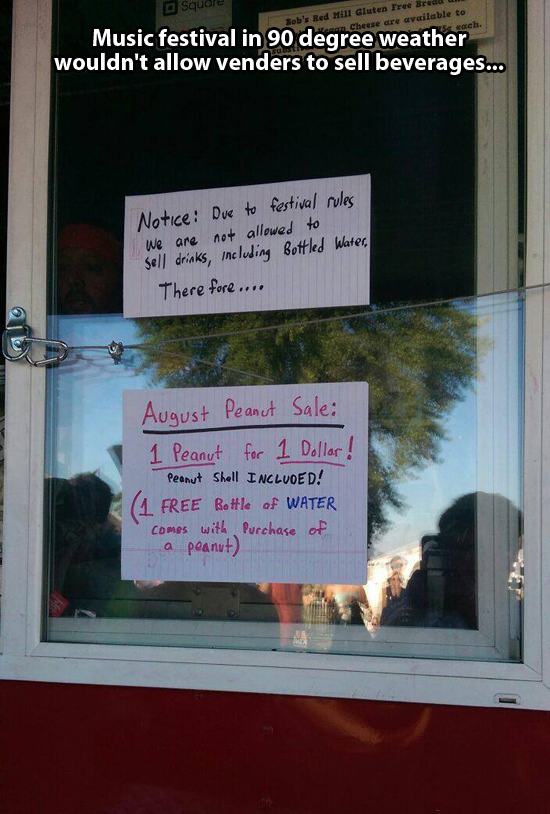 Square
Bob's Red Mill Gluten Free Bread
Cheese are available to
each.
Music festival in 90 degree weather
wouldn't allow venders to sell beverages...
Notice: Due to festival rules
we are not allowed to
sell drinks, including Bottled Water,
Therefore....
August Peanut Sale:
1 Peanut for 1 Dollar!
Peanut Shell INCLUDED!
(1 FREE Bottle of WATER
comes with Purchase of
a peanut)